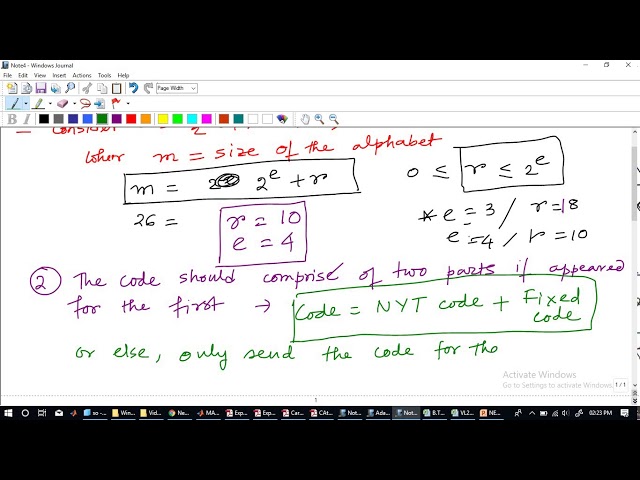 Note4 - Windows Journal
File Edit View Insert Actions Tools Help
Page Width
Consider 2
wher m = size of the alphabet
m = 2 2^e + r
0 ≤ r ≤ 2^e
26 = r = 10
e = 4
*e = 3 / r = 18
e = 4 / r = 10
② The code should comprise of two parts if appeared
for the first → Code = NYT code + Fixed code
or else, only send the code for the
Activate Windows
Go to Settings to activate Windows.
1 / 1
1
so - Win... Vid... Ne... MA... Exp... Exp... Car... CAt... Not... Ada... Not... B.T... VL2... NE... 02:23 PM